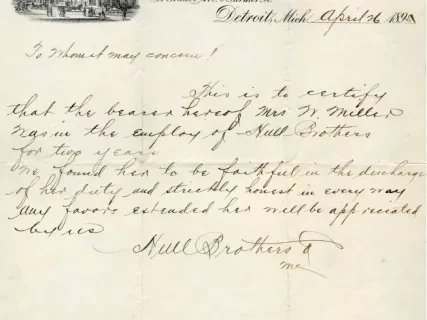 Detroit, Mich. April 26 189
To Whom it may concern!
This is to certify
that the bearer hereof Mrs W. Miller
was in the employ of Hull Brothers
for two years
We found her to be faithful in the discharge
of her duty and strickly honest in every way
any favors extended her will be appreciated
by us
Hull Brothers